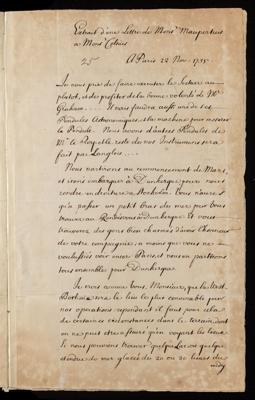 Extrait d'une Lettre de Mons.r Maupertuis
a Mons.r Celsius
25
A Paris 22 Nov. 1735
Je vous prie de faire executer le Secteur au
plutôt, et de profiter de la bonne volonté de Mr
Graham.... Il nous faudra aussi une de ses
Pendules Astronomiques, et la machine pour mesurer
la Pendule. Nous avons d'autres Pendules de
Mr le Roy, et le reste de nos Instrumens sera
fait par Langlois....
Nous partirons au commencement de Mars,
et irons embarquer à Dunkerque pour nous
rendre en droiture à Stockolm. Vous n'aurez
qu'à passer un petit bras de mer pour vous
trouver au Rendezvous à Dunkerque. Et vous
trouverez des gens bien charmés d'avoir l'honneur
de votre compagnie, à moins que vous ne
voulussiez voir encor Paris, et nous en partirons
tous ensemble pour Dunkerque.
Je vous avoue bien, Monsieur, que la West
Bothnie sera le lieu le plus convenable pour
nos operations cependant il faut pour cela
de certaines circonstances dans le terrain, dont
on ne peut etre assuré qu'en voyant les lieux.
Si nous pouvions trouver quelque Lac ou quelque
étendue de mer glacée de 20 ou 30 lieues du
midy